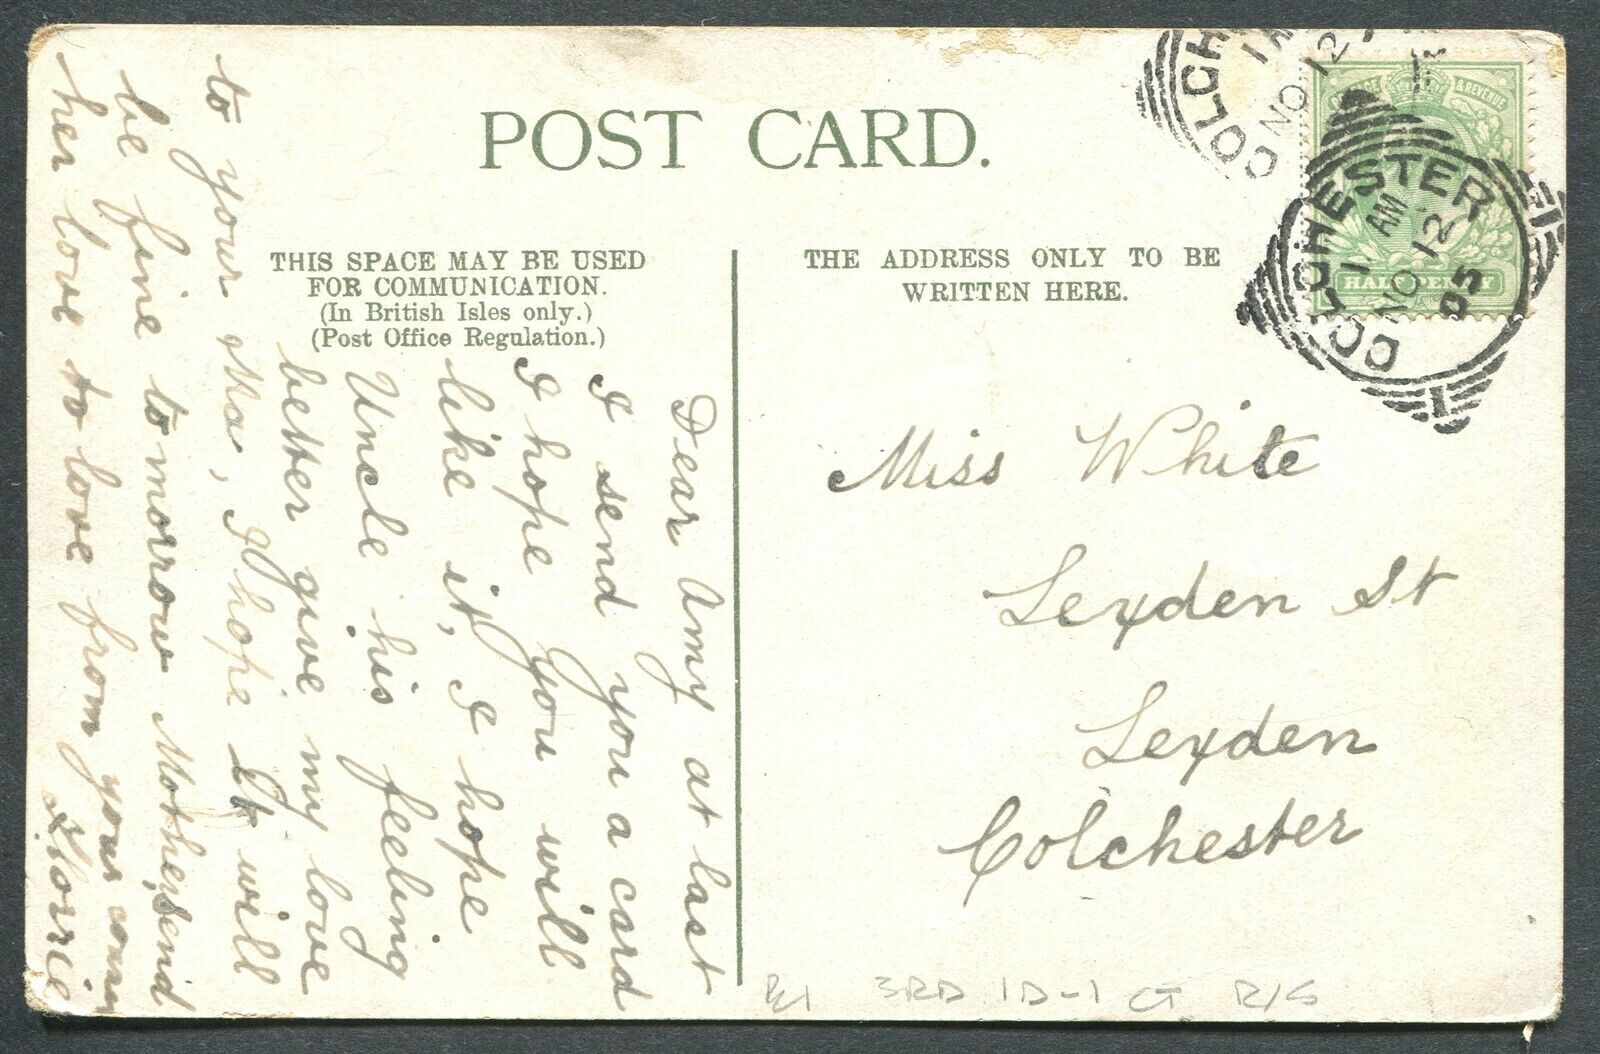 POST CARD.
THIS SPACE MAY BE USED
FOR COMMUNICATION.
(In British Isles only.)
(Post Office Regulation.)
THE ADDRESS ONLY TO BE
WRITTEN HERE.
COLCHESTER
1 AM
NO 12
05
COLCH
NO 12
& REVENUE
HALFPENNY
Dear Amy at last
I send you a card
I hope you will
like it, I hope
Uncle his feeling
better give my love
to your Ma, I hope it will
be fine tomorrow Mother send
her love to love from your
Florrie
Miss White
Leyden St
Leyden
Colchester
3RD 1D-1 CT R/S